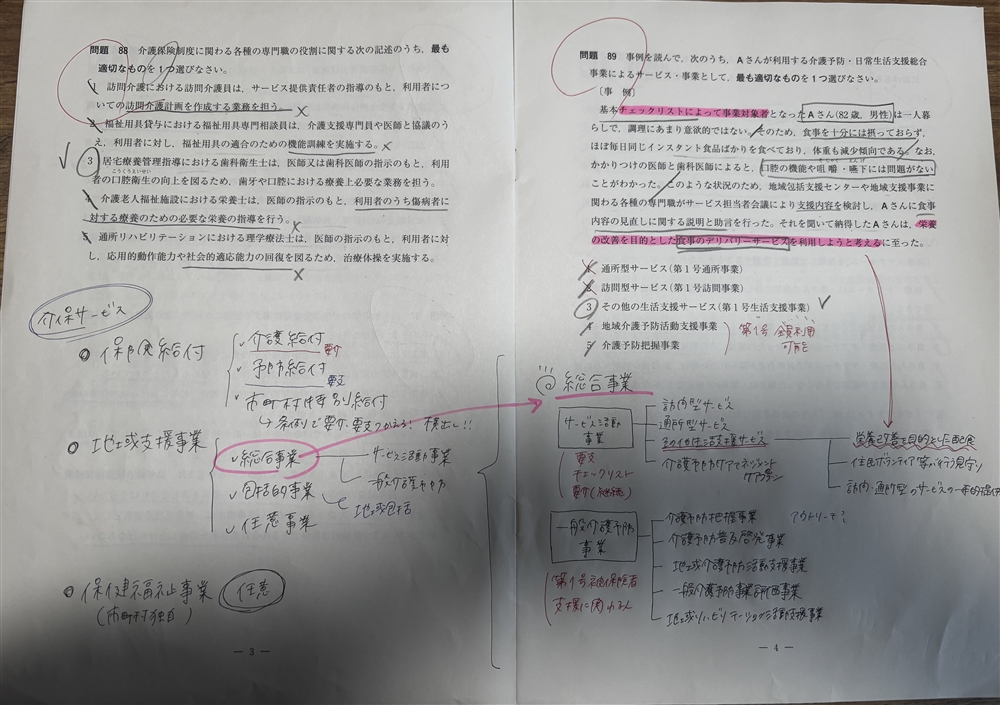 問題 88 介護保険制度に関わる各種の専門職の役割に関する次の記述のうち、最も
適切なものを1つ選びなさい。
1 訪問介護における訪問介護員は、サービス提供責任者の指導のもと、利用者につ
いての訪問介護計画を作成する業務を担う。
2 福祉用具貸与における福祉用具専門相談員は、介護支援専門員や医師と協議のう
え、利用者に対し、福祉用具の適合のための機能訓練を実施する。
3 居宅療養管理指導における歯科衛生士は、医師又は歯科医師の指示のもと、利用
こうくうえいせい
者の口腔衛生の向上を図るため、歯牙や口腔における療養上必要な業務を担う。
4 介護老人福祉施設における栄養士は、医師の指示のもと、利用者のうち傷病者に
対する療養のための必要な栄養の指導を行う。
5 通所リハビリテーションにおける理学療法士は、医師の指示のもと、利用者に対
し、応用的動作能力や社会的適応能力の回復を図るため、治療体操を実施する。
介保サービス
保険給付
介護給付
要介
予防給付
要支
市町村特別給付
↳条例で要介、要支つかえる! 横出し!!
地域支援事業
総合事業
サービス活動事業
一般介護予防
包括的事業
地域包括
任意事業
保健福祉事業 任意
(市町村独自)
― 3 ―
問題 89 事例を読んで、次のうち、Aさんが利用する介護予防・日常生活支援総合
事業によるサービス・事業として、最も適切なものを1つ選びなさい。
〔事 例〕
基本チェックリストによって事業対象者となったAさん(82歳、男性)は一人暮
らしで、調理にあまり意欲的ではない。そのため、食事を十分には摂っておらず、
ほぼ毎日同じインスタント食品ばかりを食べており、体重も減少傾向である。なお、
そしゃく えんげ
かかりつけの医師と歯科医師によると、口腔の機能や咀嚼・嚥下には問題がない
ことがわかった。このような状況のため、地域包括支援センターや地域支援事業
に関わる各種の専門職がサービス担当者会議により支援内容を検討し、Aさんに食事
内容の見直しに関する説明と助言を行った。それを聞いて納得したAさんは、栄養
の改善を目的とした食事のデリバリーサービスを利用しようと考えるに至った。
1 通所型サービス(第1号通所事業)
2 訪問型サービス(第1号訪問事業)
3 その他の生活支援サービス(第1号生活支援事業)
4 地域介護予防活動支援事業
5 介護予防把握事業
第1号 全員利用
可能
総合事業
サービス活動
事業
訪問型サービス
通所型サービス
その他生活支援サービス
介護予防ケアマネジメント
ケアプラン
要支
チェックリスト
要介(継続)
栄養改善を目的とした配食
住民ボランティア等が行う見守り
訪問・通所型のサービスの一体的提供
一般介護予防
事業
介護予防把握事業 アウトリーチ?
介護予防普及啓発事業
地域介護予防活動支援事業
一般介護予防事業評価事業
地域リハビリテーション活動支援事業
第1号被保険者
支援に関わる人
― 4 ―